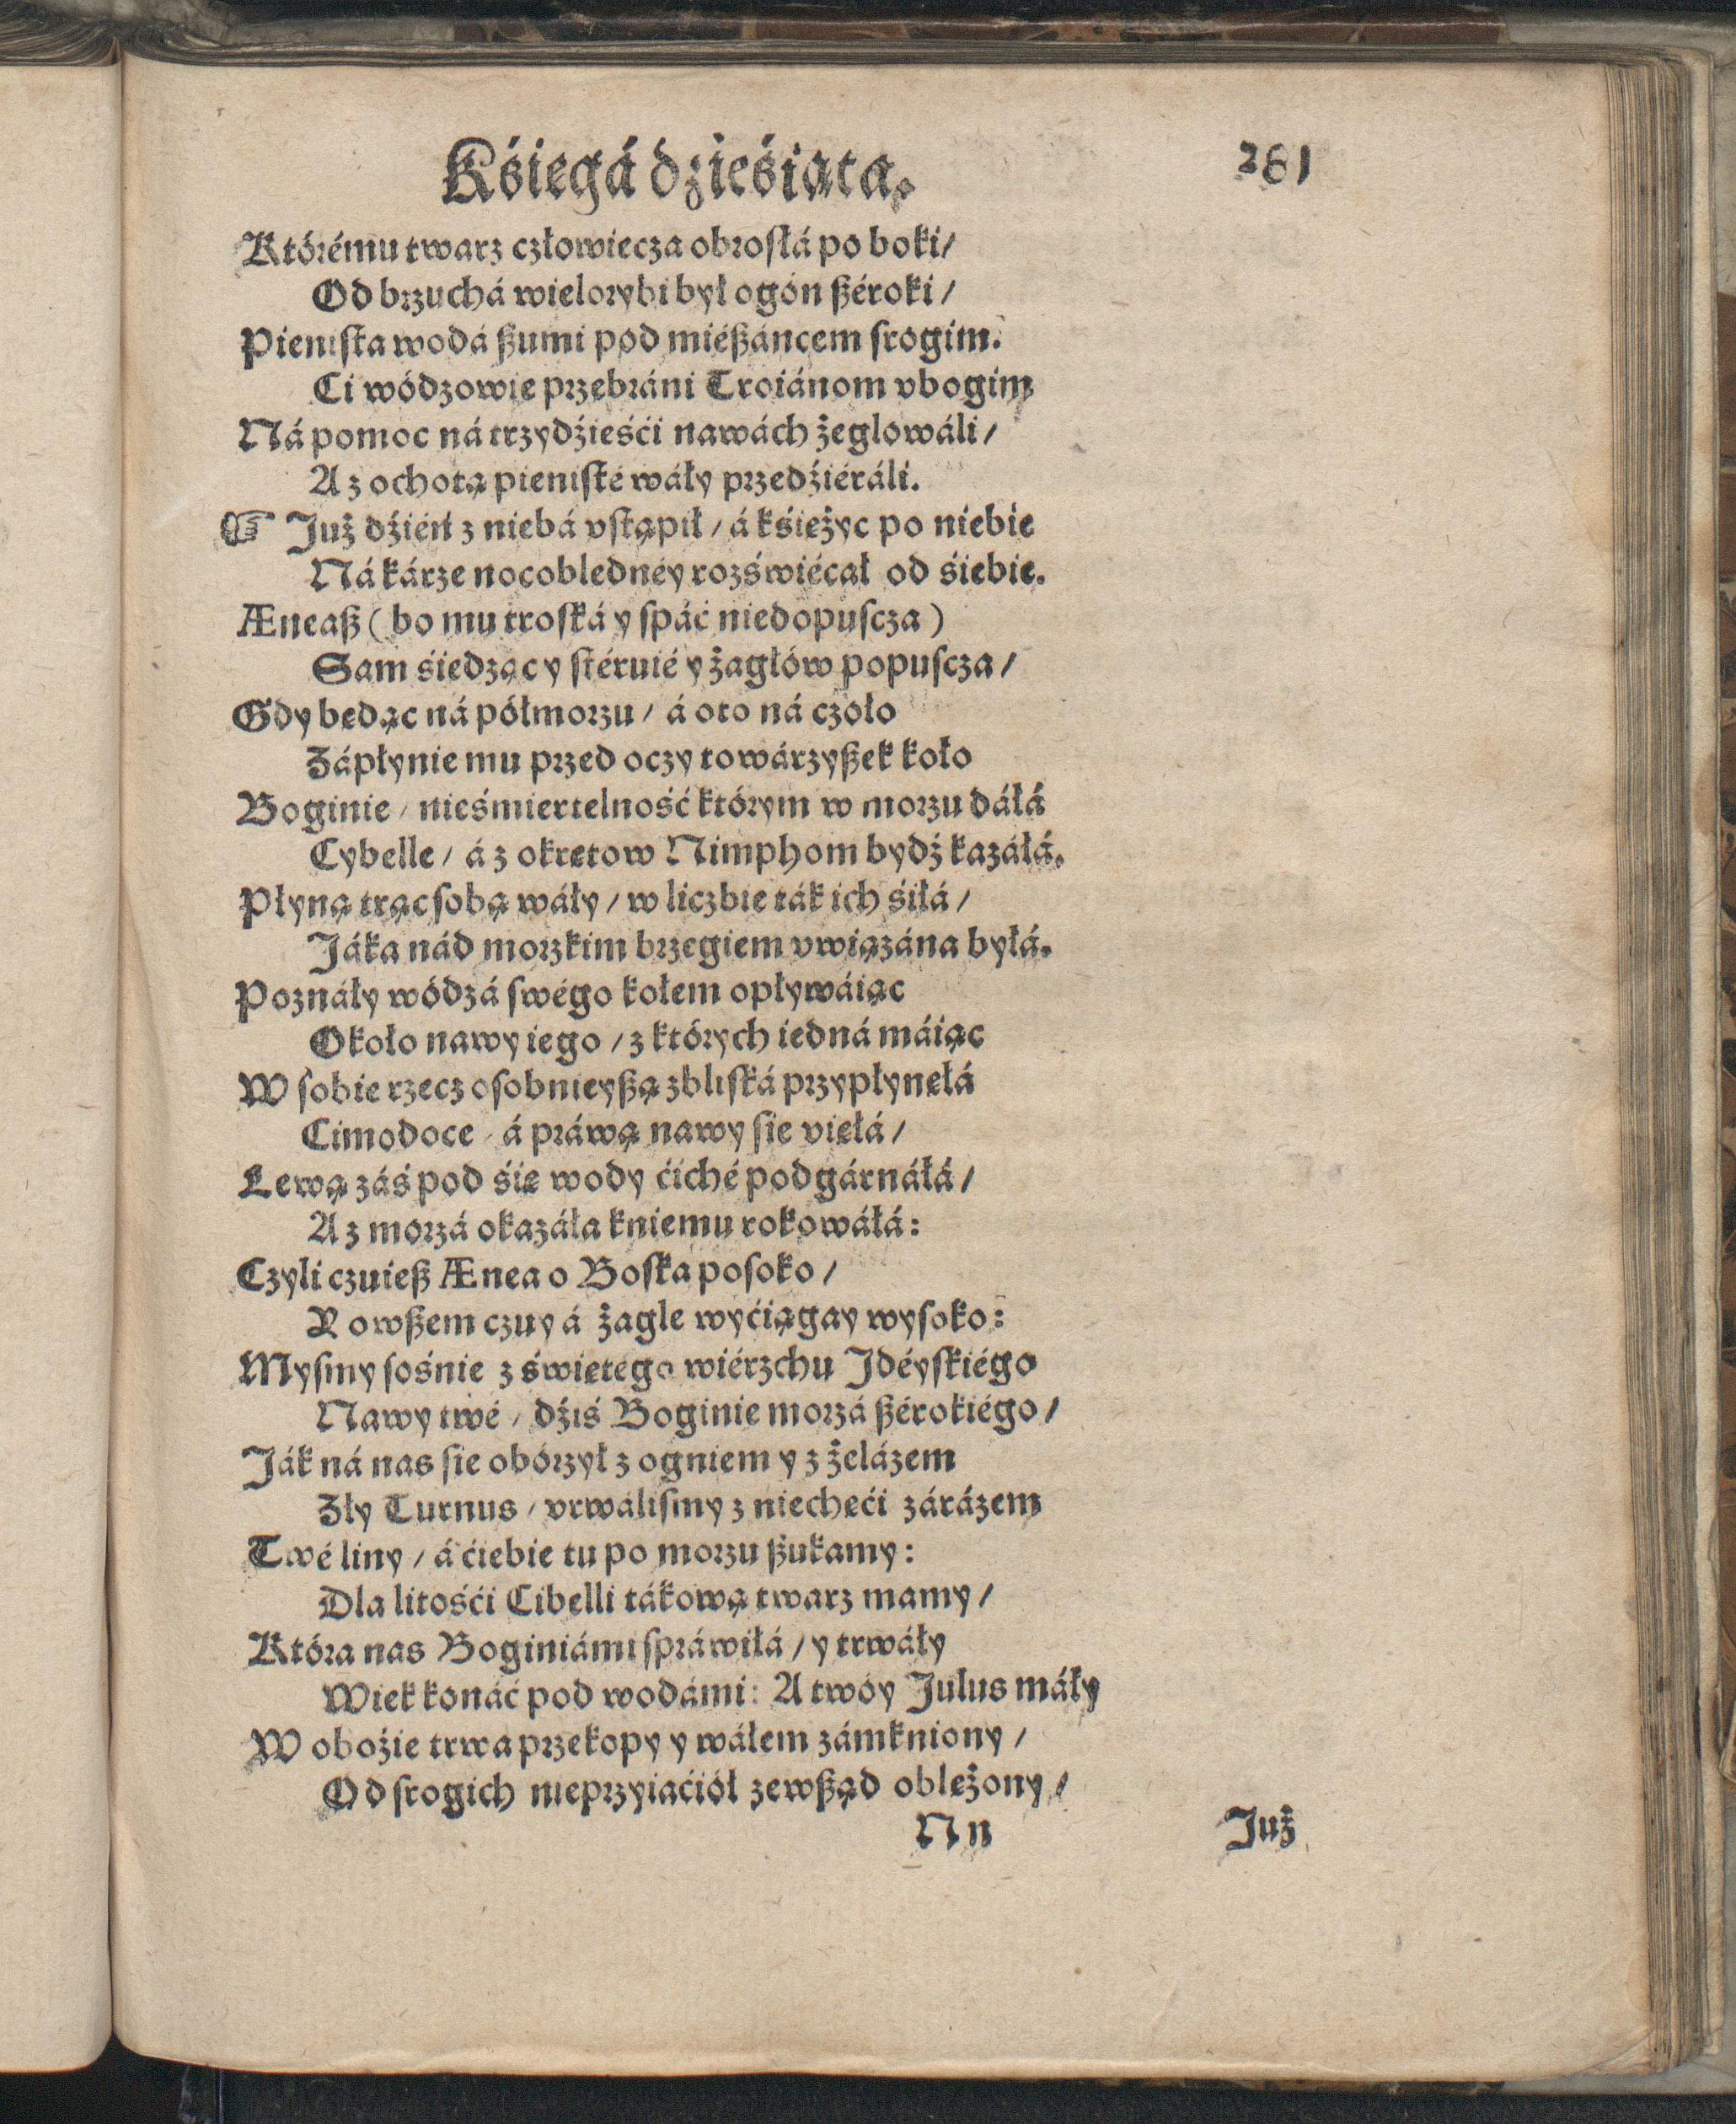 Kśięgá dźieśiąta. 261
Którému twarz człowiecza obrosłá po boki/
Od brzuchá wielorybi był ogón ßéroki/
Pienista wodá ßumi pod miéßáncem srogim.
Ci wódzowie przebráni Troiánom vbogim
Ná pomoc ná trzydźieśći nawách żeglowáli/
A z ochotą pienisté wáły przedźiéráli.
☞ Już dźień z niebá vstąpił/ á kśiężyc po niebie
Ná kárze nocobłednéy rozświécał od śiebie.
Æneaß (bo mu troská y spáć niedopuscza)
Sam śiedząc y stéruié y żagłów popuscza/
Gdy będąc ná półmorzu/ á oto ná czoło
Zápłynie mu przed oczy towárzyßek koło
Boginie/ nieśmiertelność którym w morzu dáłá
Cybelle/ á z okrętow Nimphom bydź kazáłá.
Płyną trąc sobą wáły/ w liczbie ták ich śiłá/
Jáka nád morzkim brzegiem vwiązána byłá.
Poznáły wódzá swégo kołem opływáiąc
Około nawy iego/ z których iedná máiąc
W sobie rzecz osobnieyßą zbliská przypłynęłá
Cimodoce/ á práwą nawy sie vięłá/
Lewą záś pod śię wody ćiché podgárnáłá/
A z morzá okazáła kniemu rokowáłá:
Czyli czuieß Ænea o Boska posoko/
Y owßem czuy á żagle wyćiągay wysoko:
Mysmy sośnie z świętégo wiérzchu Jdéyskiégo
Nawy twé/ dźiś Boginie morzá ßérokiégo/
Ják ná nas sie obórzył z ogniem y z żelázem
Zły Turnus/ vrwálismy z niechęći zárázem
Twé liny/ á ćiebie tu po morzu ßukamy:
Dla litośći Cibelli tákową twarz mamy/
Która nas Boginiámi spráwiłá/ y trwáły
Wiek konáć pod wodámi: A twóy Julus máły
W oboźie trwa przekopy y wáłem zámkniony/
Od srogich nieprzyiaćiół zewßąd oblężony/
Nn Już